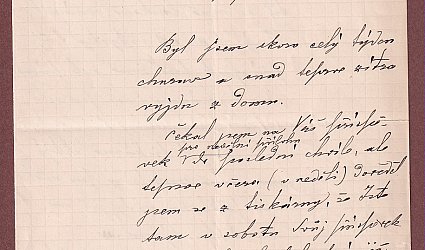 Byl jsem skoro celý týden
churav a snad teprve zítra
vyjdu z domu.
Čekal jsem na Váš příspě
pro nedělní přílohu
vek do poslední chvíle, ale
teprve včera (v neděli) dověděl
jsem se z tiskárny, že
tam v sobotu Svůj příspěvek